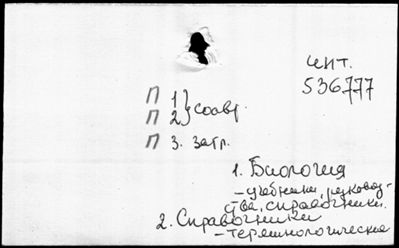 чит.
536777
П 1} соавт.
П 2
П 3. загл.
1. Биология
- учебники, руковод-
ства, справочники.
2. Справочники
- терминологические